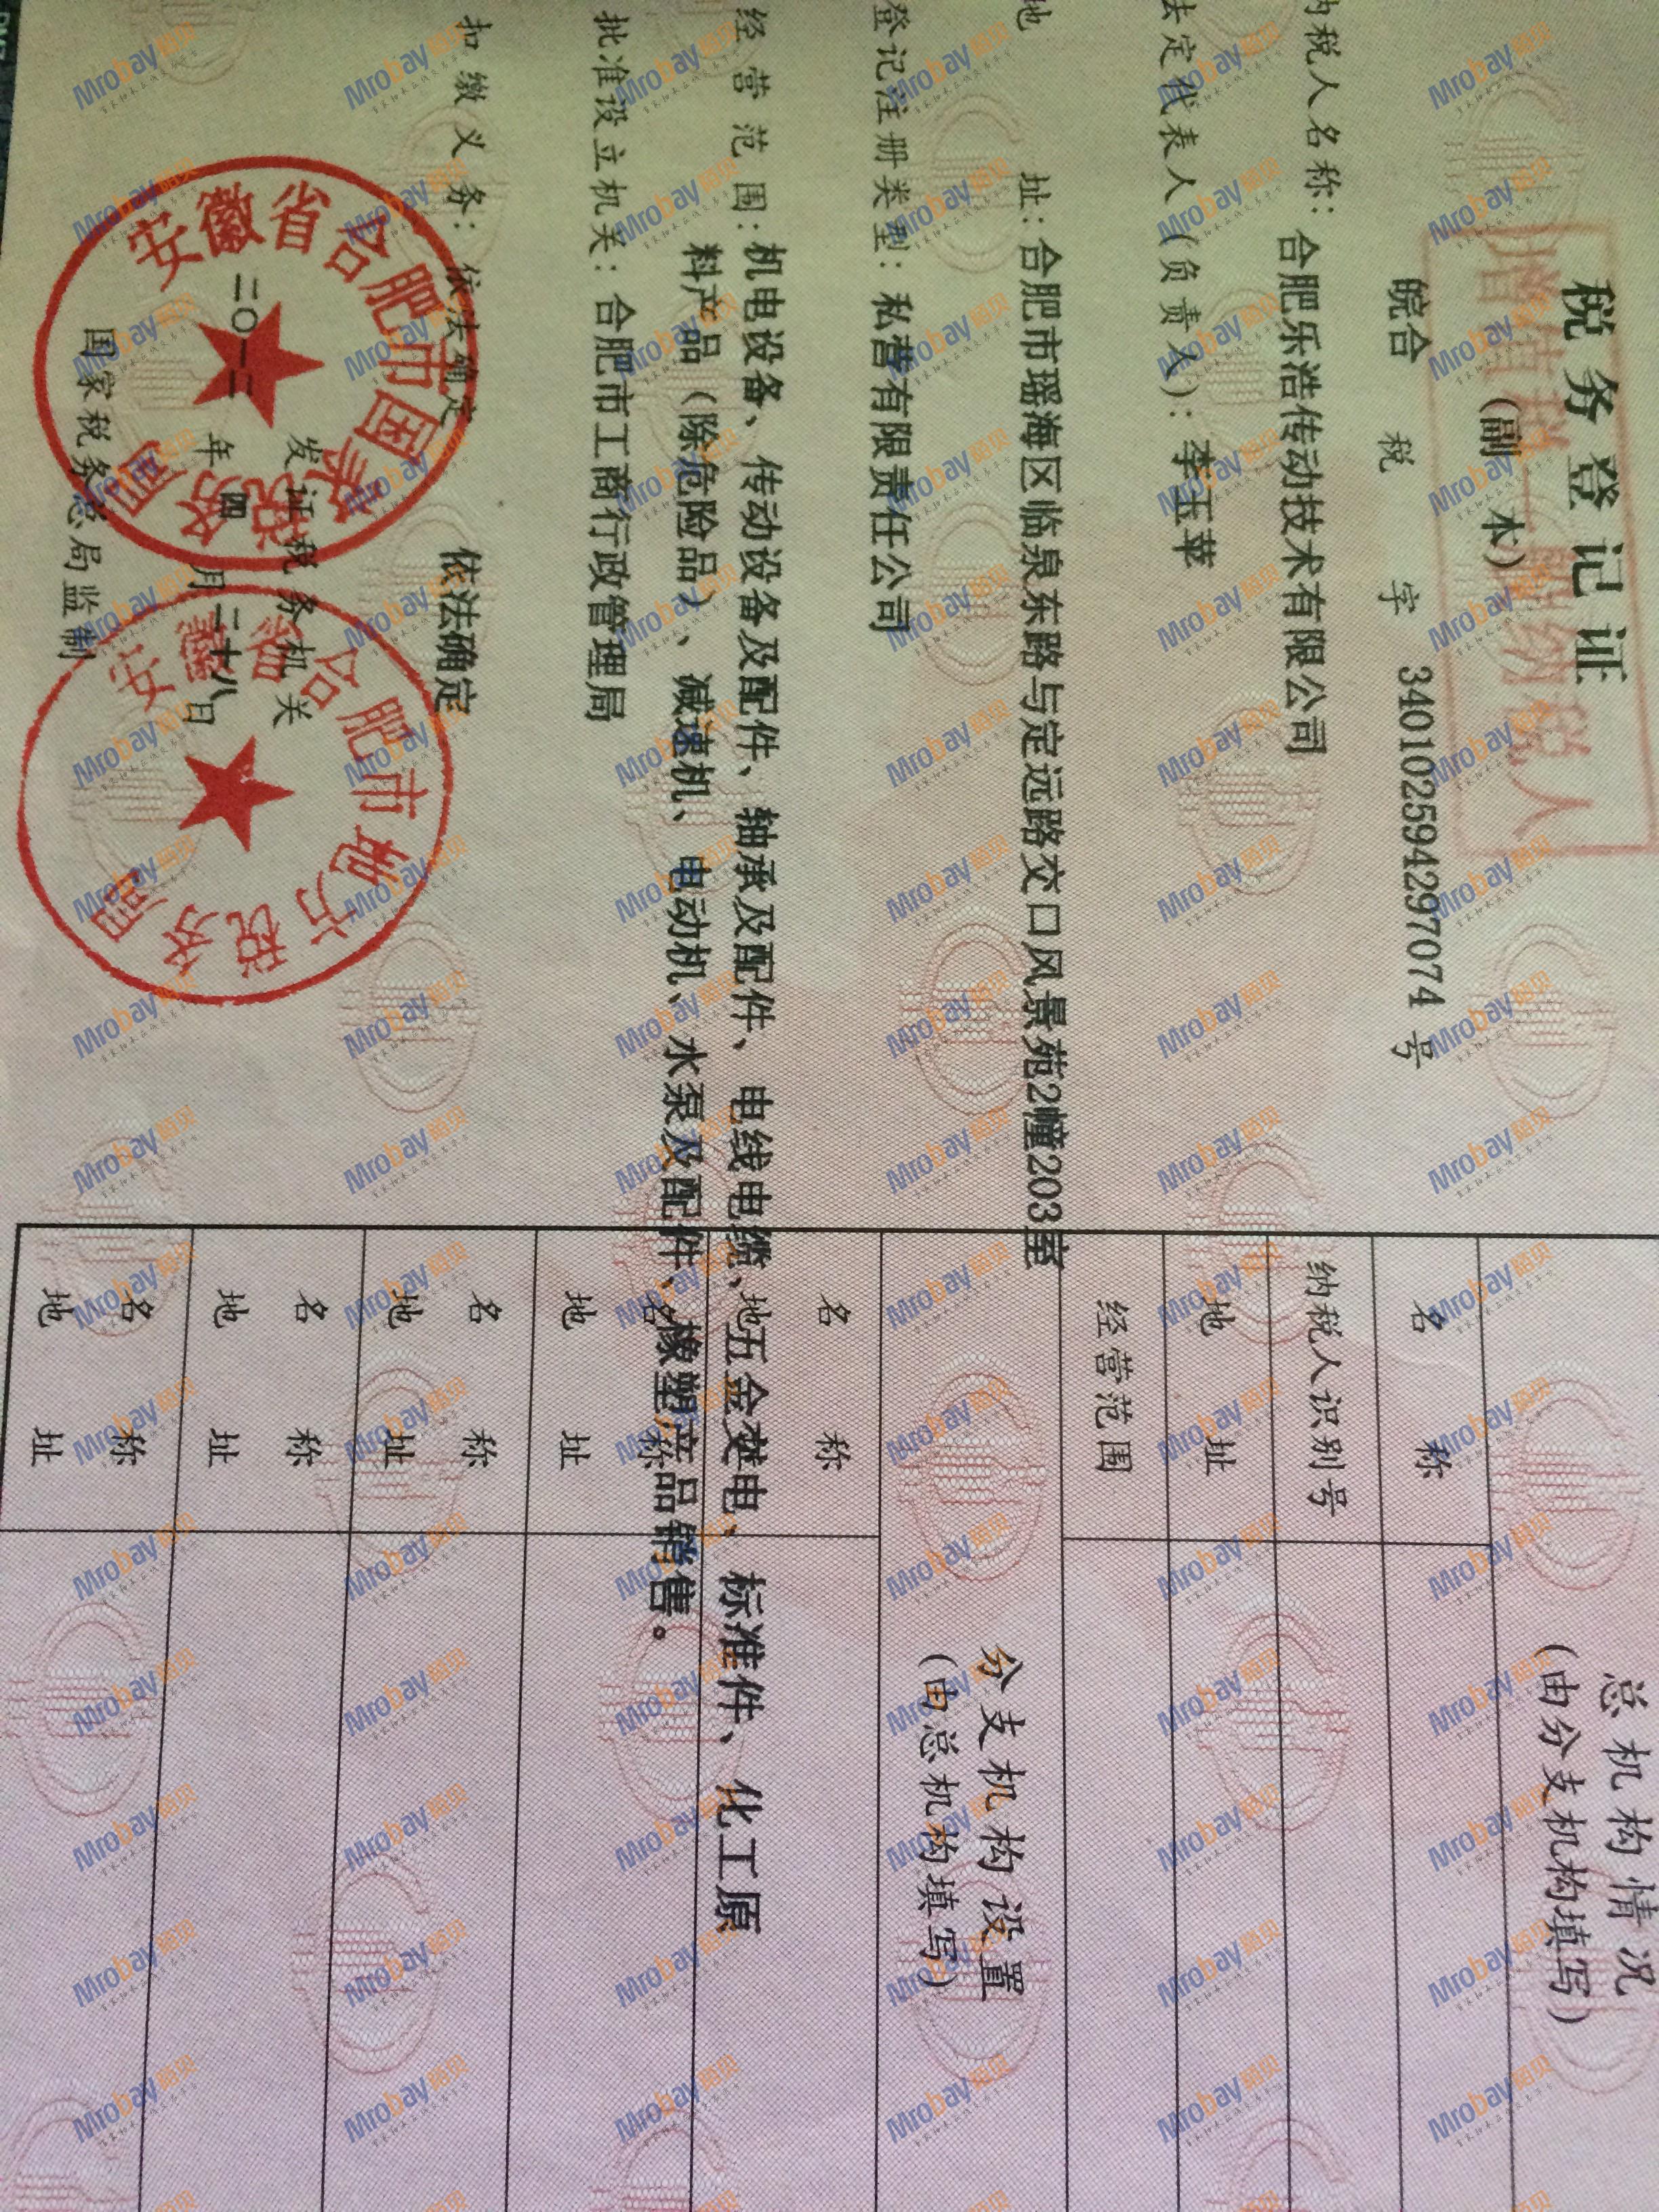 税务登记证
(副 本)
增值税一般纳税人
皖合 税 字 340102594297074 号
纳税人名称: 合肥乐浩传动技术有限公司
法定代表人(负责人): 李玉苹
地 址: 合肥市瑶海区临泉东路与定远路交口风景苑2幢203室
登记注册类型: 私营有限责任公司
经营范围: 机电设备、传动设备及配件、轴承及配件、电线电缆、五金交电、标准件、化工原
料产品(除危险品)、减速机、电动机、水泵及配件、橡塑产品销售。
批准设立机关: 合肥市工商行政管理局
扣缴义务: 依法确定 依法确定
发证税务机关
二〇一二 年 四 月 二十八 日
国家税务总局监制
安徽省合肥市国家税务局
安徽省合肥市地方税务局
总机构情况
(由分支机构填写)
名 称
纳税人识别号
地 址
经营范围
分支机构设置
(由总机构填写)
名 称
地 址
名 称
地 址
名 称
地 址
名 称
地 址
名 称
地 址
Mrobay 陌贝